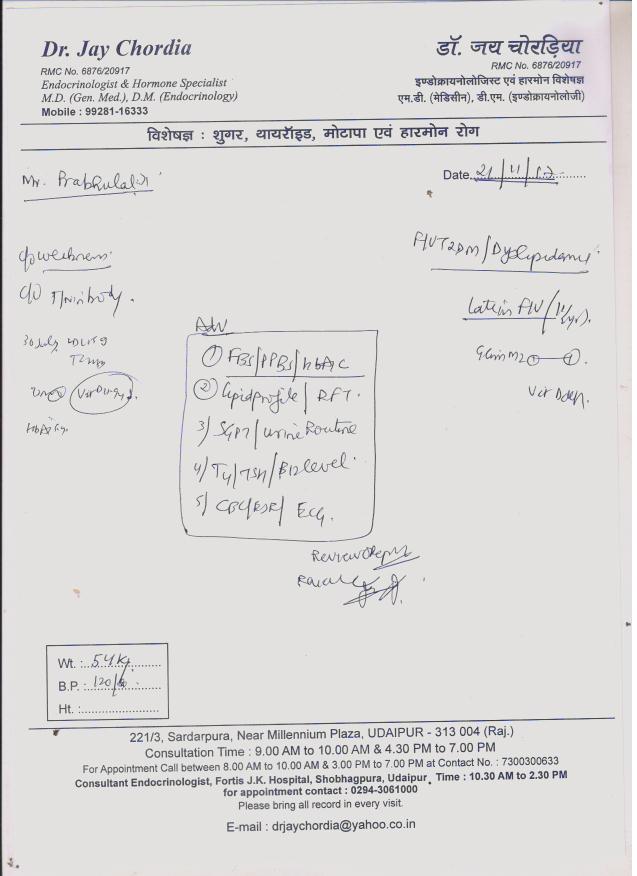 Dr. Jay Chordia
RMC No. 6876/20917
Endocrinologist & Hormone Specialist
M.D. (Gen. Med.), D.M. (Endocrinology)
Mobile : 99281-16333
डॉ. जय चोरड़िया
RMC No. 6876/20917
इण्डोक्रायनोलोजिस्ट एवं हारमोन विशेषज्ञ
एम.डी. (मेडिसीन), डी.एम. (इण्डोक्रायनोलॉजी)
विशेषज्ञ : शुगर, थायरॉइड, मोटापा एवं हारमोन रोग
Mr. Prabhulal
Date 21/11/
F/U T2DM/Dyslipidemia
c/o weakness
c/o body.
Late in F/U
Adv
① FBS/PPBS/HbA1C
② Lipid profile/RFT.
3) SGPT/Urine Routine
4) T4/TSH/B12 level.
5) CBC/ESR/ECG.
Vit D
Review
Wt. : 54 kg
B.P. : 120/
Ht. :
221/3, Sardarpura, Near Millennium Plaza, UDAIPUR - 313 004 (Raj.)
Consultation Time : 9.00 AM to 10.00 AM & 4.30 PM to 7.00 PM
For Appointment Call between 8.00 AM to 10.00 AM & 3.00 PM to 7.00 PM at Contact No. : 7300300633
Consultant Endocrinologist, Fortis J.K. Hospital, Shobhagpura, Udaipur, Time : 10.30 AM to 2.30 PM
for appointment contact : 0294-3061000
Please bring all record in every visit.
E-mail : drjaychordia@yahoo.co.in